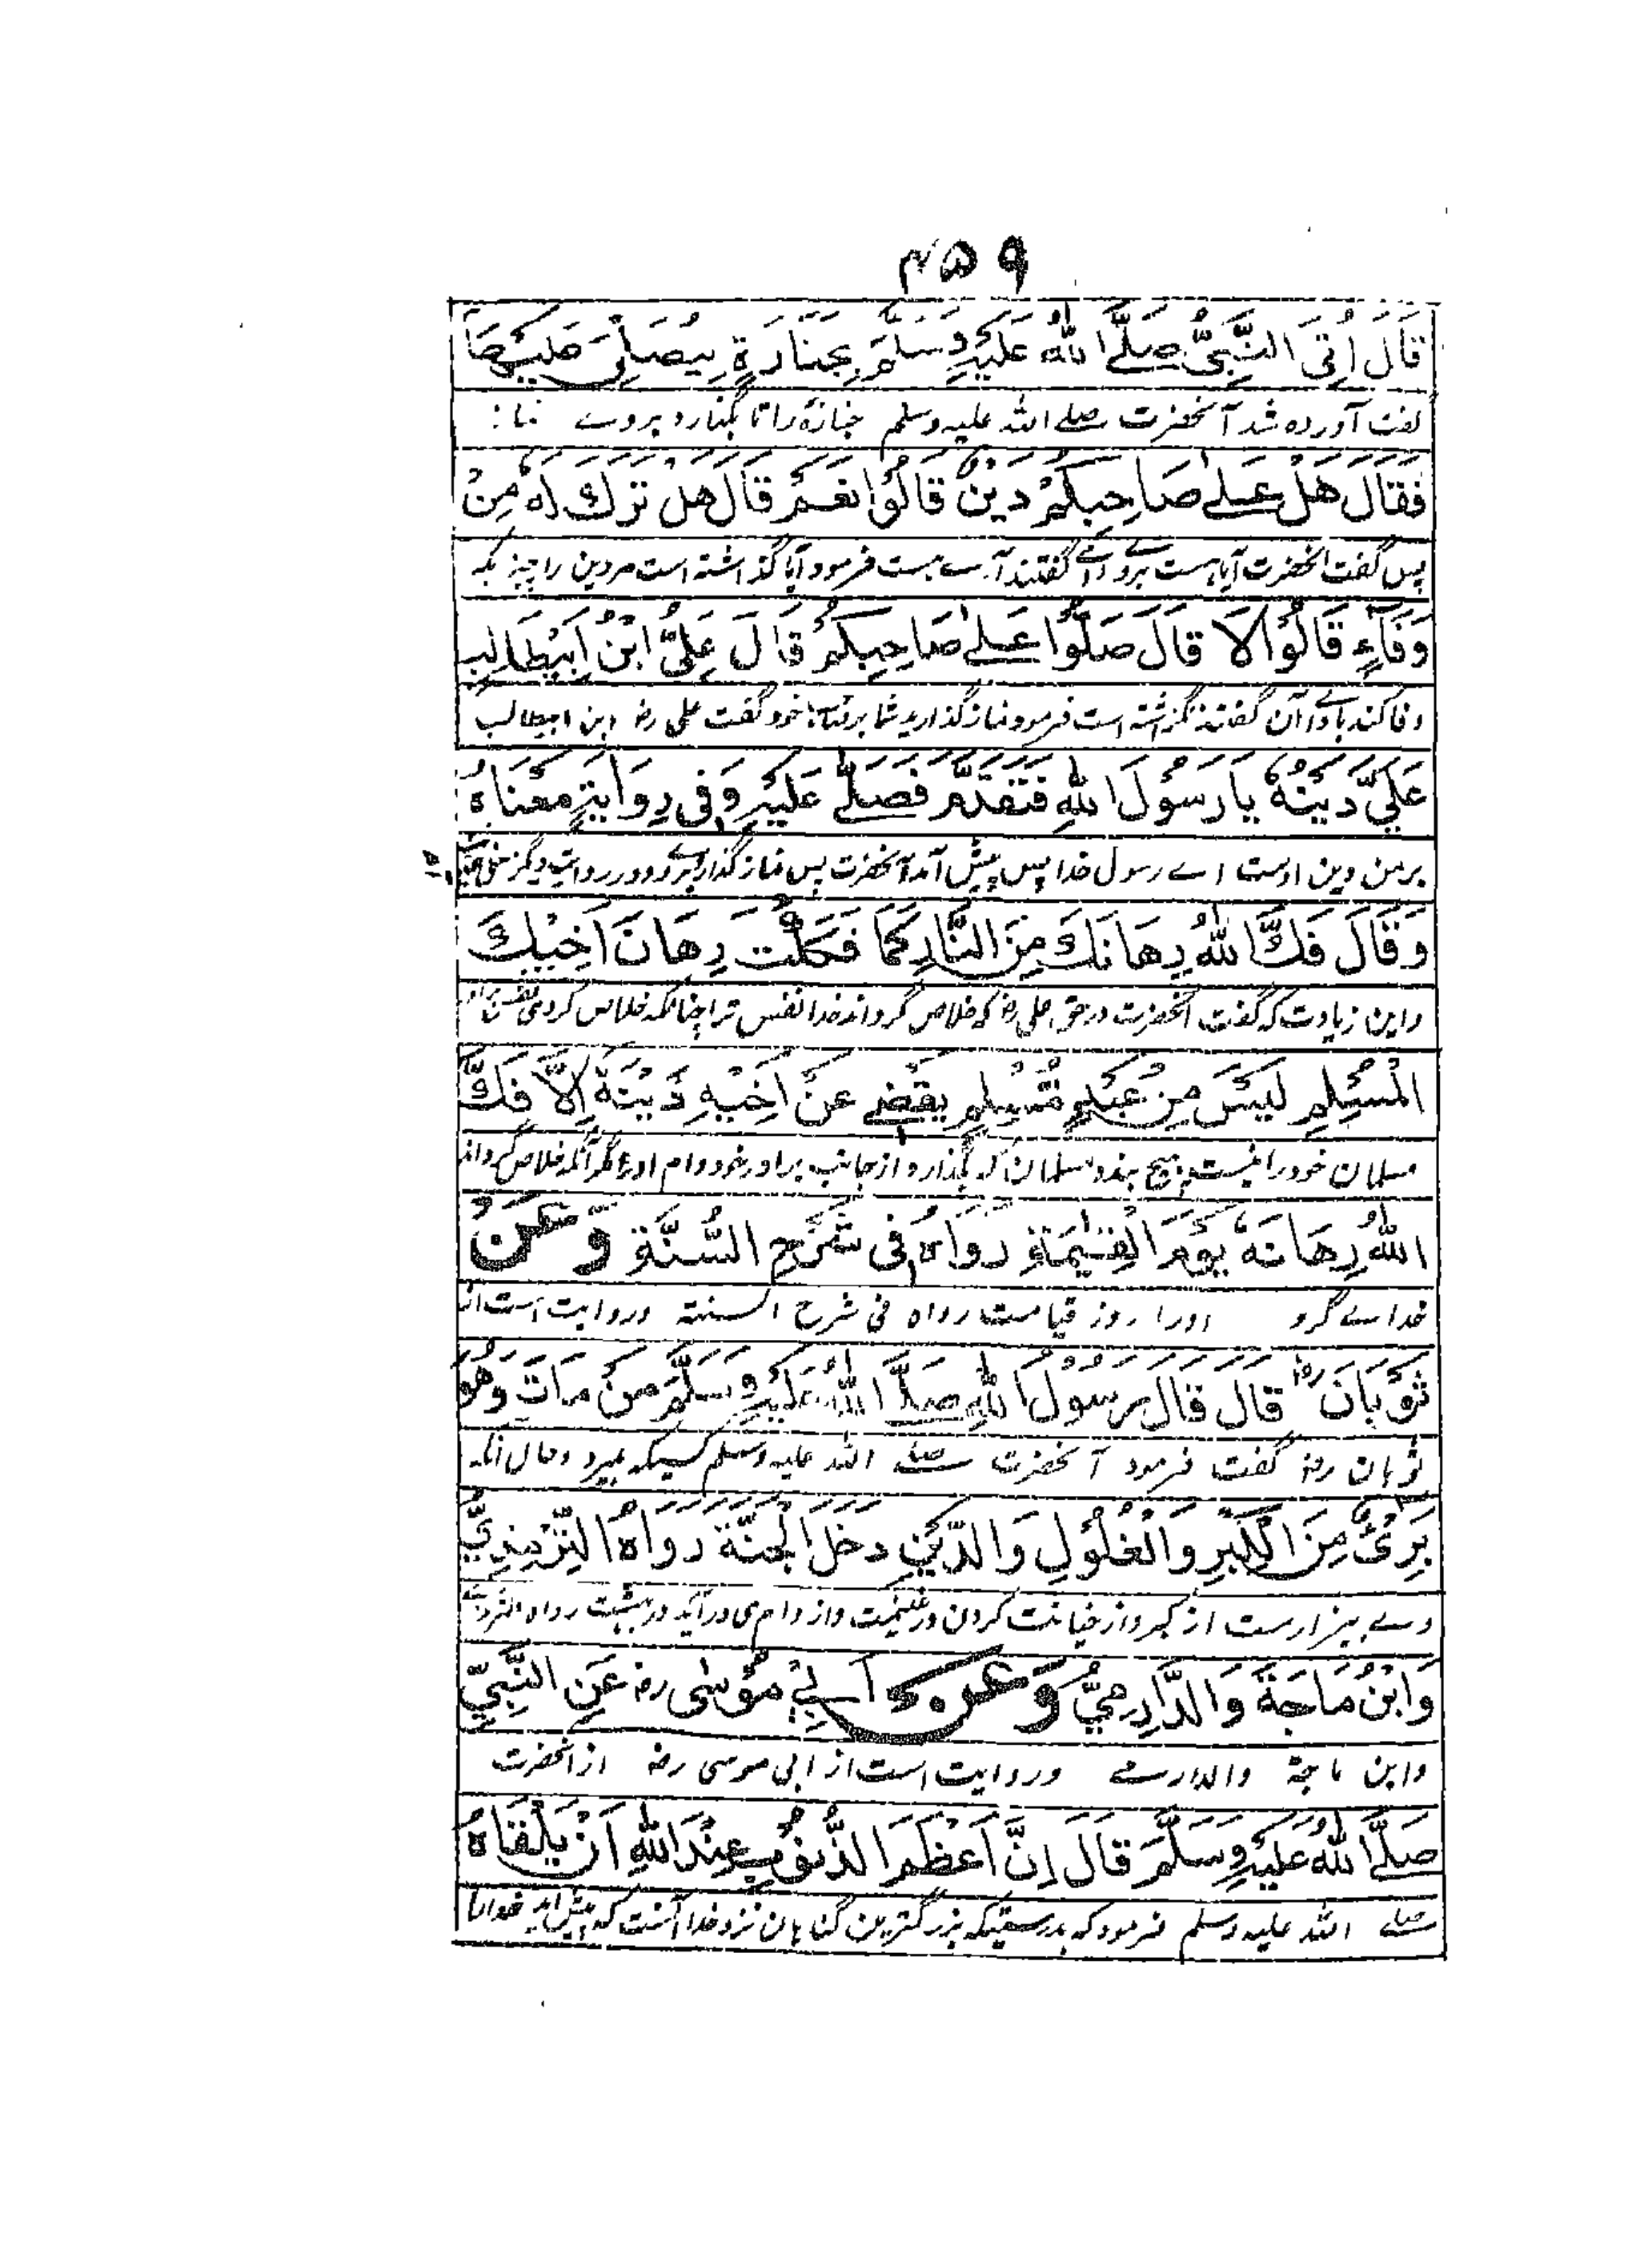 ۴۵۹
قَالَ اُتِیَ النَّبِیُّ صَلَّے اللّٰهُ عَلَیْهِ وَسَلَّمَ بِجَنَازَةٍ لِیُصَلِّیَ عَلَیْهَا
گفت آورده شد آنحضرت صلے الله علیه وسلم جنازۀ را تا بگذارد بروے نماز
فَقَالَ هَلْ عَلٰے صَاحِبِكُمْ دَیْنٌ قَالُوْا نَعَمْ قَالَ هَلْ تَرَكَ لَهٗ مِنْ
پس گفت آنحضرت آیا هست بر یار شما وامے گفتند آرے هست فرمود آیا گذاشته است مر دین را چیزیکه
وَفَآءٍ قَالُوْا لَا قَالَ صَلُّوْا عَلٰے صَاحِبِكُمْ قَالَ عَلِیُّ ابْنُ اَبِیْطَالِبٍ
وفا کند بادای آن گفتند نگذاشته است فرمود نماز گذارید شما بر خود گفت علی رضه ابن ابیطالب
عَلَیَّ دَیْنُهٗ یَا رَسُوْلَ اللّٰهِ فَتَقَدَّمَ فَصَلّٰے عَلَیْهِ وَفِی رِوَایَةٍ مَعْنَاهُ
بر من دین اوست اے رسول خدا پس پیش آمد آنحضرت پس نماز گذارد بروے و در روایت دیگر
وَقَالَ فَكَّ اللّٰهُ رِهَانَكَ مِنَ النَّارِ كَمَا فَكَكْتَ رِهَانَ اَخِیْكَ
و این زیادت که گفت آنحضرت در حق علی رضه که خلاص گرداند خدا نفس ترا چنانکه خلاص کردی نفس برادر
الْمُسْلِمِ لَیْسَ مِنْ عَبْدٍ مُّسْلِمٍ یَقْضِے عَنْ اَخِیْهِ دَیْنَهٗ اِلَّا فَكَّ
مسلمان خود را نیست هیچ بنده مسلمان که بگذارد از جانب برادر خود وام او را مگر آنکه خلاص گرداند
اللّٰهُ رِهَانَهٗ یَوْمَ الْقِیٰمَةِ رَوَاهُ فِی شَرْحِ السُّنَّةِ وَّعَنْ
خداے گرو اورا روز قیامت رواه فی شرح السنة و روایت است از
ثَوْبَانَ رضه قَالَ قَالَ رَسُوْلُ اللّٰهِ صَلَّے اللّٰهُ عَلَیْهِ وَسَلَّمَ مَنْ مَاتَ وَهُوَ
ثوبان رضه گفت فرمود آنحضرت صلے الله علیه وسلم کسیکه بمیرد و حال آنکه
بَرِیْئٌ مِنَ الْكِبْرِ وَالْغُلُوْلِ وَالدَّیْنِ دَخَلَ الْجَنَّةَ رَوَاهُ التِّرْمِذِیُّ
وے بیزارست از کبر و از خیانت کردن در غنیمت و از وام می درآید در بهشت رواه الترمذے
وَابْنُ مَاجَةَ وَالدَّارِمِیُّ وَعَنْ اَبِیْ مُوْسٰی رضه عَنِ النَّبِیِّ
وابن ماجة والدارمے و روایت است از ابی موسی رضه از آنحضرت
صَلَّے اللّٰهُ عَلَیْهِ وَسَلَّمَ قَالَ اِنَّ اَعْظَمَ الذُّنُوْبِ عِنْدَ اللّٰهِ اَنْ یَلْقَاهُ
صلے الله علیه وسلم فرمود که بدرستیکه بزرگترین گناهان نزد خدا آنست که پیش آید خدا را